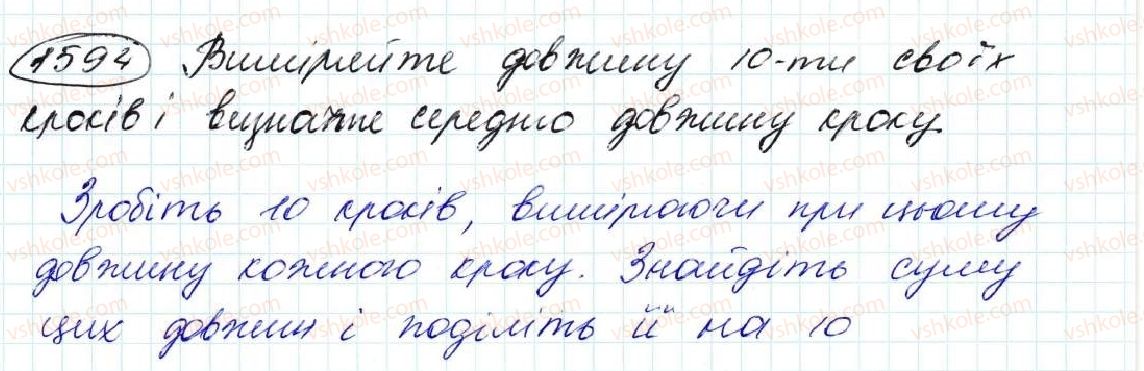 1594 Виміряйте довжину 10-ти своїх
кроків і визначте середню довжину кроку
Зробіть 10 кроків, вимірюючи при цьому
довжину кожного кроку. Знайдіть суму
цих довжин і поділіть її на 10